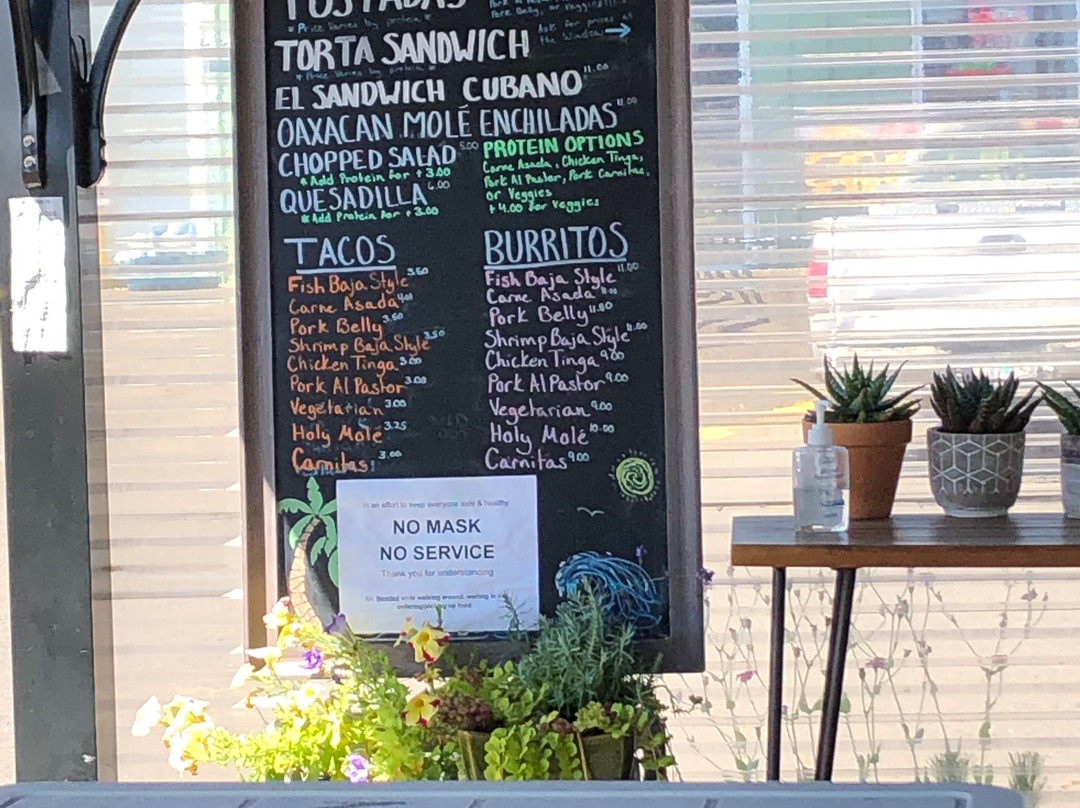 TOSTADAS
* Price Varies by protein *
Pork Belly, or Veggies
TORTA SANDWICH
Ask for prices at
the window →
* Price Varies by protein *
EL SANDWICH CUBANO 11.00
OAXACAN MOLÉ ENCHILADAS 11.00
CHOPPED SALAD 5.00
* Add Protein for + 3.00
QUESADILLA 6.00
* Add Protein for + 3.00
PROTEIN OPTIONS
Carne Asada, Chicken Tinga,
Pork Al Pastor, Pork Carnitas,
or Veggies
+ 4.00 for Veggies
TACOS
Fish Baja Style 3.50
Carne Asada
Pork Belly 3.50
Shrimp Baja Style 3.50
Chicken Tinga 3.00
Pork Al Pastor 3.00
Vegetarian 3.00
Holy Molé 3.25
Carnitas 3.00
BURRITOS
Fish Baja Style 11.00
Carne Asada 11.00
Pork Belly 11.00
Shrimp Baja Style 11.00
Chicken Tinga 9.00
Pork Al Pastor 9.00
Vegetarian 9.00
Holy Molé 10.00
Carnitas 9.00
In an effort to keep everyone safe & healthy
NO MASK
NO SERVICE
Thank you for understanding
while walking around, waiting in
ordering/picking up food